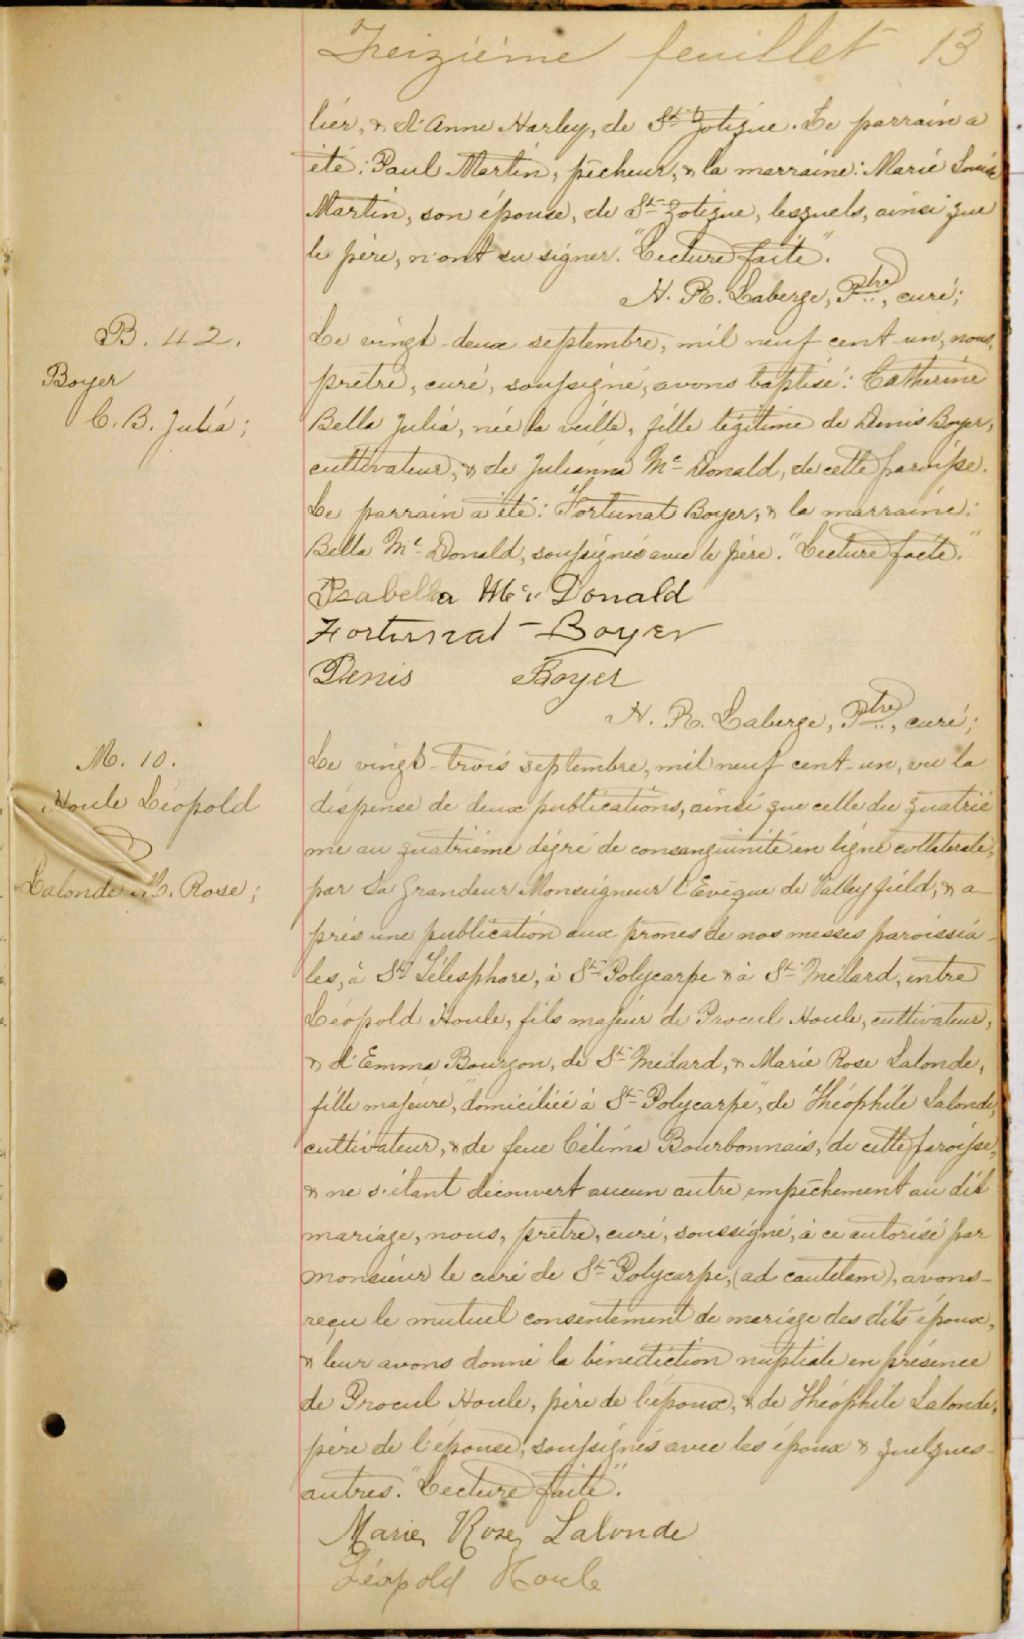 Treizième feuillet 13
lier, & d'Anne Harley, de St Zotique. Le parrain a
été: Paul Martin, pêcheur, & la marraine: Marie Louise
Martin, son épouse, de St Zotique, lesquels, ainsi que
le père, n'ont su signer. "Lecture faite".
H. R. Laberge, Ptre, curé;
B. 42.
Boyer
C. B. Julia;
Le vingt-deux septembre, mil neuf cent-un, nous,
prêtre, curé, soussigné, avons baptisé: Catherine
Bella Julia, née la veille, fille légitime de Denis Boyer,
cultivateur, & de Julianna Mc Donald, de cette paroisse.
Le parrain a été: Fortunat Boyer, & la marraine:
Bella Mc Donald, soussignés avec le père. "Lecture faite."
Isabella Mc Donald
Fortunat Boyer
Denis Boyer
H. R. Laberge, Ptre, curé;
M. 10.
Houle Léopold
&
Lalonde M. Rose;
Le vingt-trois septembre, mil neuf cent-un, vu la
dispense de deux publications, ainsi que celle du quatriè
me au quatrième dégré de consanguinité en ligne collatérale,
par Sa Grandeur Monseigneur l'Evêque de Valleyfield, & a-
près une publication aux prônes de nos messes paroissia-
les, à St Télesphore, à St Polycarpe & à St Médard, entre
Léopold Houle, fils majeur de Procul Houle, cultivateur,
& d'Emma Bourgon, de St Médard, & Marie Rose Lalonde,
fille majeure, "domiciliée à St Polycarpe", de Théophile Lalonde,
cultivateur, & de feue Célima Bourbonnais, de cette paroisse,
& ne s'étant découvert aucun autre empêchement au dit
mariage, nous, prêtre, curé, soussigné, à ce autorisé par
monsieur le curé de St Polycarpe, (ad cautelam), avons-
reçu le mutuel consentement de mariage des dits époux,
& leur avons donné la bénédiction nuptiale en présence
de Procul Houle, père de l'époux, & de Théophile Lalonde,
père de l'épouse, soussignés avec les époux & quelques-
autres. "Lecture faite".
Marie Rose Lalonde
Léopold Houle